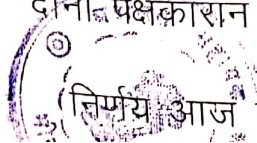 दोनों पक्षकारान
निर्णय आज